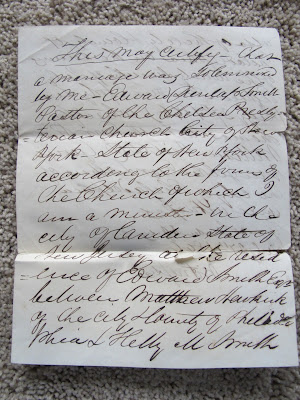 This may certify that
a marriage was solemnized
by me Edward
Pastor of the Chelsea Presby-
-terian Church City of New
York - State of New York
according to the forms of
the Church of which I
am a minister - in the
city of Camden State of
New Jersey at the resid
-ence of Edward Smith Esqr
between Matthew
of the City & County of Philadel
phia & M Smith